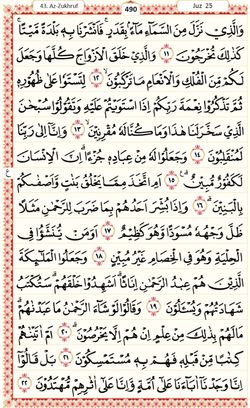 43. Az-Zukhruf 490 Juz 25
وَالَّذِيْ نَزَّلَ مِنَ السَّمَآءِ مَآءً بِقَدَرٍۚ فَاَنْشَرْنَا بِهٖ بَلْدَةً مَّيْتًاۚ
كَذٰلِكَ تُخْرَجُوْنَ ١١ وَالَّذِيْ خَلَقَ الْاَزْوَاجَ كُلَّهَا وَجَعَلَ
لَكُمْ مِّنَ الْفُلْكِ وَالْاَنْعَامِ مَا تَرْكَبُوْنَۙ ١٢ لِتَسْتَوٗا عَلٰى ظُهُوْرِهٖ
ثُمَّ تَذْكُرُوْا نِعْمَةَ رَبِّكُمْ اِذَا اسْتَوَيْتُمْ عَلَيْهِ وَتَقُوْلُوْا سُبْحٰنَ
الَّذِيْ سَخَّرَ لَنَا هٰذَا وَمَا كُنَّا لَهٗ مُقْرِنِيْنَۙ ١٣ وَاِنَّآ اِلٰى رَبِّنَا
لَمُنْقَلِبُوْنَ ١٤ وَجَعَلُوْا لَهٗ مِنْ عِبَادِهٖ جُزْءًاۗ اِنَّ الْاِنْسَانَ
لَكَفُوْرٌ مُّبِيْنٌۗ ١٥ اَمِ اتَّخَذَ مِمَّا يَخْلُقُ بَنٰتٍ وَّاَصْفٰىكُمْ
بِالْبَنِيْنَ ١٦ وَاِذَا بُشِّرَ اَحَدُهُمْ بِمَا ضَرَبَ لِلرَّحْمٰنِ مَثَلًا
ظَلَّ وَجْهُهٗ مُسْوَدًّا وَّهُوَ كَظِيْمٌ ١٧ اَوَمَنْ يُّنَشَّؤُا فِى
الْحِلْيَةِ وَهُوَ فِى الْخِصَامِ غَيْرُ مُبِيْنٍ ١٨ وَجَعَلُوا الْمَلٰۤىِٕكَةَ
الَّذِيْنَ هُمْ عِبٰدُ الرَّحْمٰنِ اِنَاثًاۗ اَشَهِدُوْا خَلْقَهُمْۗ سَتُكْتَبُ
شَهَادَتُهُمْ وَيُسْـَٔلُوْنَ ١٩ وَقَالُوْا لَوْ شَآءَ الرَّحْمٰنُ مَا عَبَدْنٰهُمْۗ
مَا لَهُمْ بِذٰلِكَ مِنْ عِلْمٍ اِنْ هُمْ اِلَّا يَخْرُصُوْنَۗ ٢٠ اَمْ اٰتَيْنٰهُمْ
كِتٰبًا مِّنْ قَبْلِهٖ فَهُمْ بِهٖ مُسْتَمْسِكُوْنَ ٢١ بَلْ قَالُوْٓا
اِنَّا وَجَدْنَآ اٰبَآءَنَا عَلٰٓى اُمَّةٍ وَّاِنَّا عَلٰٓى اٰثٰرِهِمْ مُّهْتَدُوْنَ ٢٢